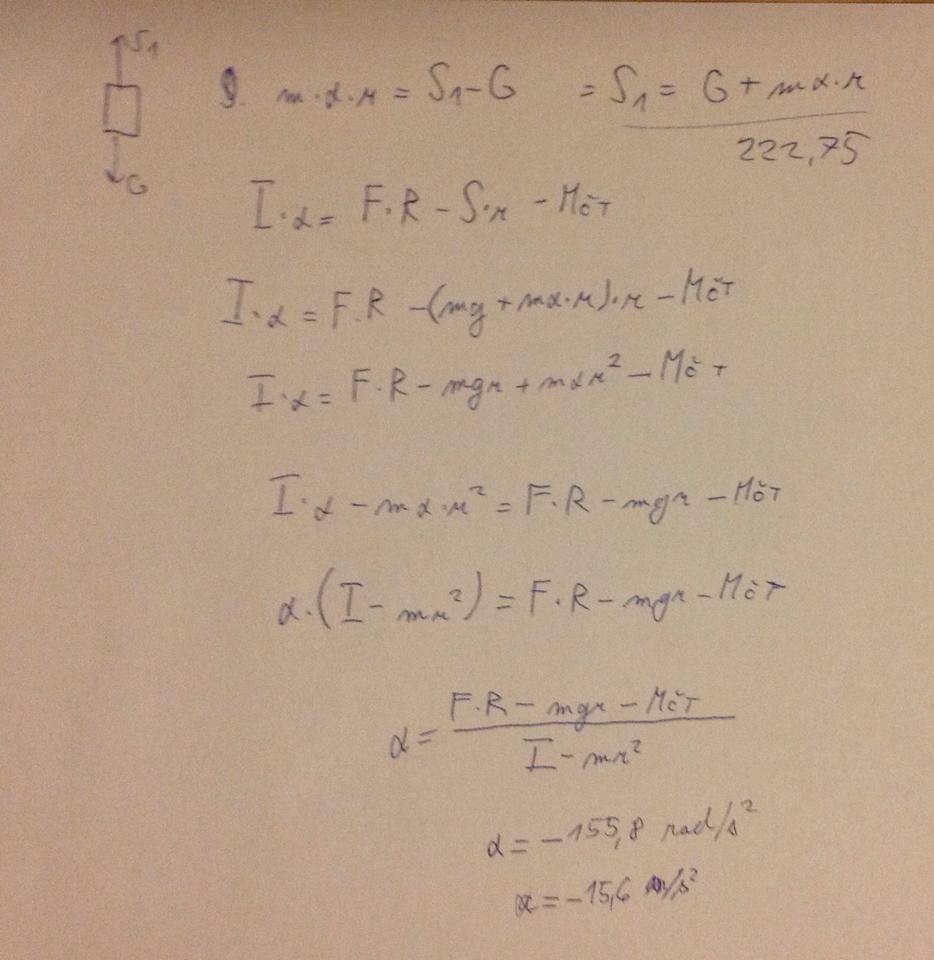 S₁
G
9. m·α·r = S₁-G = S₁ = G + mα·r
222,75
I·α = F·R - S·r - Mčт
I·α = F·R -(mg + mα·r)·r - Mčт
I·α = F·R - mgr + mαr² - Mčт
I·α - mα·r² = F·R - mgr - Mčт
α·(I - mr²) = F·R - mgr - Mčт
α = (F·R - mgr - Mčт)/(I - mr²)
α = -155,8 rad/s²
α = -15,6 m/s²